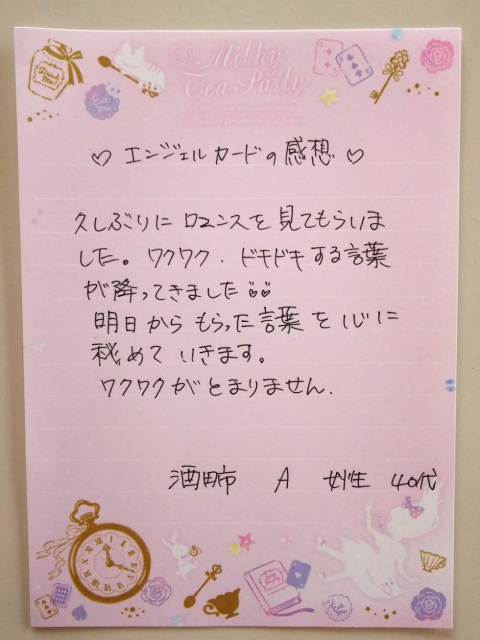 Milky
Tea Party
Drink Me!
Eat Me
♡ エンジェルカードの感想 ♡
久しぶりにロマンスを見てもらいま
した。ワクワク.ドキドキする言葉
が降ってきました!!
明日からもらった言葉を心に
秘めていきます。
ワクワクがとまりません.
酒田市 A 女性 40代